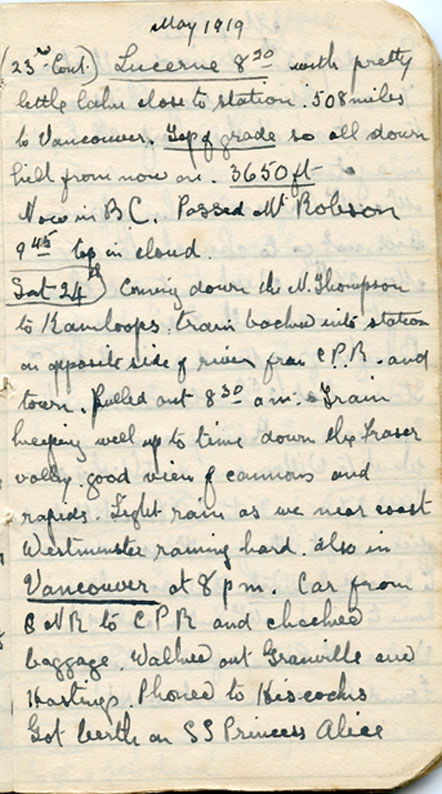 May 1919
(23rd Cont.) Lucerne 8 20 with pretty
little lake close to station. 508 miles
to Vancouver. Top of grade so all down
hill from now on. 3650 ft
Now in B C. Passed Mt Robson
9 45 top in cloud.
Sat 24th) Coming down the N. Thompson
to Kamloops. train backed into station
on opposite side of river from C.P.R. and
town. Pulled out 8 30 a.m. Train
keeping well up to time down the Fraser
valley. good view of cannons and
rapids. Light rain as we near coast
Westminster raining hard. also in
Vancouver at 8 p m. Car from
C N R to C P R and checked
baggage. Walked out Granville and
Hastings. Phoned to Hiscocks
Got berth on SS Princess Alice